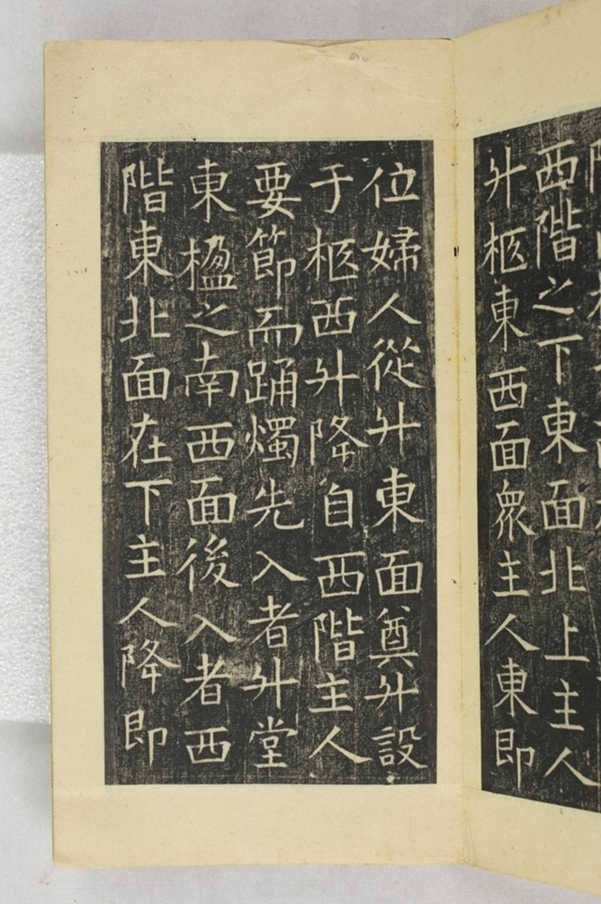 西階之下東面北上主人
升柩東西面眾主人東即
位婦人從升東面奠升設
于柩西升降自西階主人
要節而踊燭先入者升堂
東楹之南西面後入者西
階東北面在下主人降即